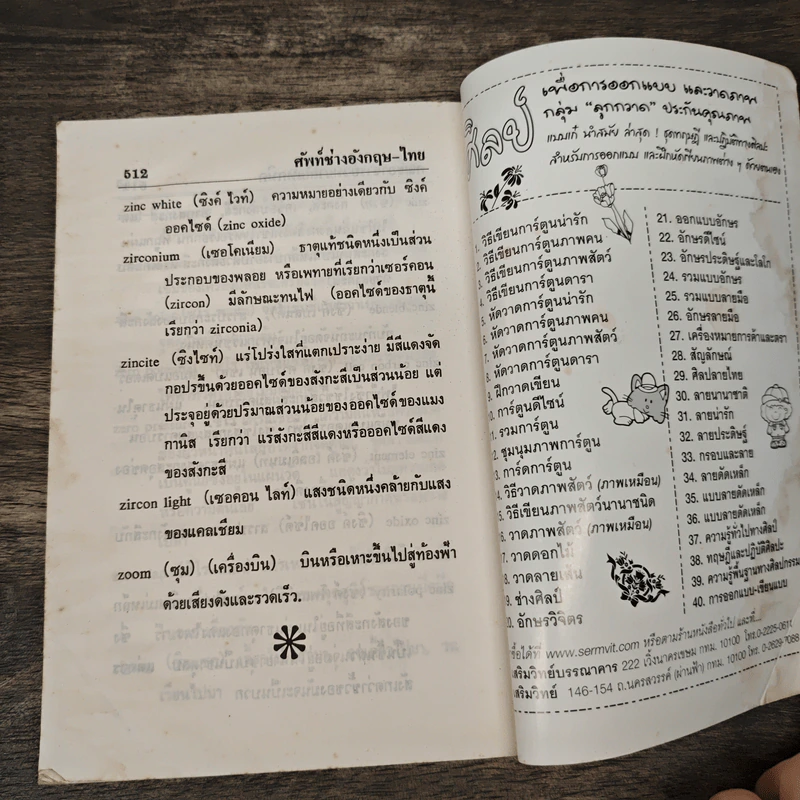 512
ศัพท์ช่างอังกฤษ-ไทย
zinc white (ซิงค์ ไวท์) ความหมายอย่างเดียวกับ ซิงค์
ออคไซด์ (zinc oxide)
zirconium (เซอโคเนียม) ธาตุแท้ชนิดหนึ่งเป็นส่วน
ประกอบของพลอย หรือเพทายที่เรียกว่าเซอร์คอน
(zircon) มีลักษณะทนไฟ (ออคไซด์ของธาตุนี้
เรียกว่า zirconia)
zincite (ซิงไซท์) แร่โปร่งใสที่แตกเปราะง่าย มีสีแดงจัด
กอปรขึ้นด้วยออคไซด์ของสังกะสีเป็นส่วนน้อย แต่
ประจุอยู่ด้วยปริมาณส่วนน้อยของออคไซด์ของแมง
กานิส เรียกว่า แร่สังกะสีสีแดงหรือออคไซด์สีแดง
ของสังกะสี
zircon light (เซอคอน ไลท์) แสงชนิดหนึ่งคล้ายกับแสง
ของแคลเซียม
zoom (ซุม) (เครื่องบิน) บินหรือเหาะขึ้นไปสู่ท้องฟ้า
ด้วยเสียงดังและรวดเร็ว.
ศิลป์
เพื่อการออกแบบ และวาดภาพ
กลุ่ม "ลูกกวาด" ประกันคุณภาพ
แบบเก๋ นำสมัย ล่าสุด ! ชุดทฤษฎี และปฏิบัติทางศิลปะ
สำหรับการออกแบบ และฝึกหัดเขียนภาพต่าง ๆ ด้วยตนเอง
1. วิธีเขียนการ์ตูนน่ารัก
2. วิธีเขียนการ์ตูนภาพคน
3. วิธีเขียนการ์ตูนภาพสัตว์
4. วิธีเขียนการ์ตูนดารา
5. หัดวาดการ์ตูนน่ารัก
6. หัดวาดการ์ตูนภาพคน
7. หัดวาดการ์ตูนภาพสัตว์
8. หัดวาดการ์ตูนดารา
9. ฝึกวาดเขียน
0. การ์ตูนดีไซน์
1. รวมการ์ตูน
2. ชุมนุมภาพการ์ตูน
3. การ์ดการ์ตูน
4. วิธีวาดภาพสัตว์ (ภาพเหมือน)
5. วิธีเขียนภาพสัตว์นานาชนิด
6. วาดภาพสัตว์ (ภาพเหมือน)
7. วาดดอกไม้
8. วาดลายเส้น
9. ช่างศิลป์
0. อักษรวิจิตร
21. ออกแบบอักษร
22. อักษรดีไซน์
23. อักษรประดิษฐ์และโลโก
24. รวมแบบอักษร
25. รวมแบบลายมือ
26. อักษรลายมือ
27. เครื่องหมายการค้าและตรา
28. สัญลักษณ์
29. ศิลปลายไทย
30. ลายนานาชาติ
31. ลายน่ารัก
32. ลายประดิษฐ์
33. กรอบและลาย
34. ลายดัดเหล็ก
35. แบบลายดัดเหล็ก
36. แบบลายดัดเหล็ก
37. ความรู้ทั่วไปทางศิลป์
38. ทฤษฎีและปฏิบัติศิลปะ
39. ความรู้พื้นฐานทางศิลปกรรม
40. การออกแบบ-เขียนแบบ
ซื้อได้ที่ www.sermvit.com หรือตามร้านหนังสือทั่วไป และที่...
เสริมวิทย์บรรณาคาร 222 เวิ้งนาครเขษม กทม. 10100 โทร.0-2225-061
เสริมวิทย์ 146-154 ถ.นครสวรรค์ (ผ่านฟ้า) กทม. 10100 โทร. 0-2629-7088